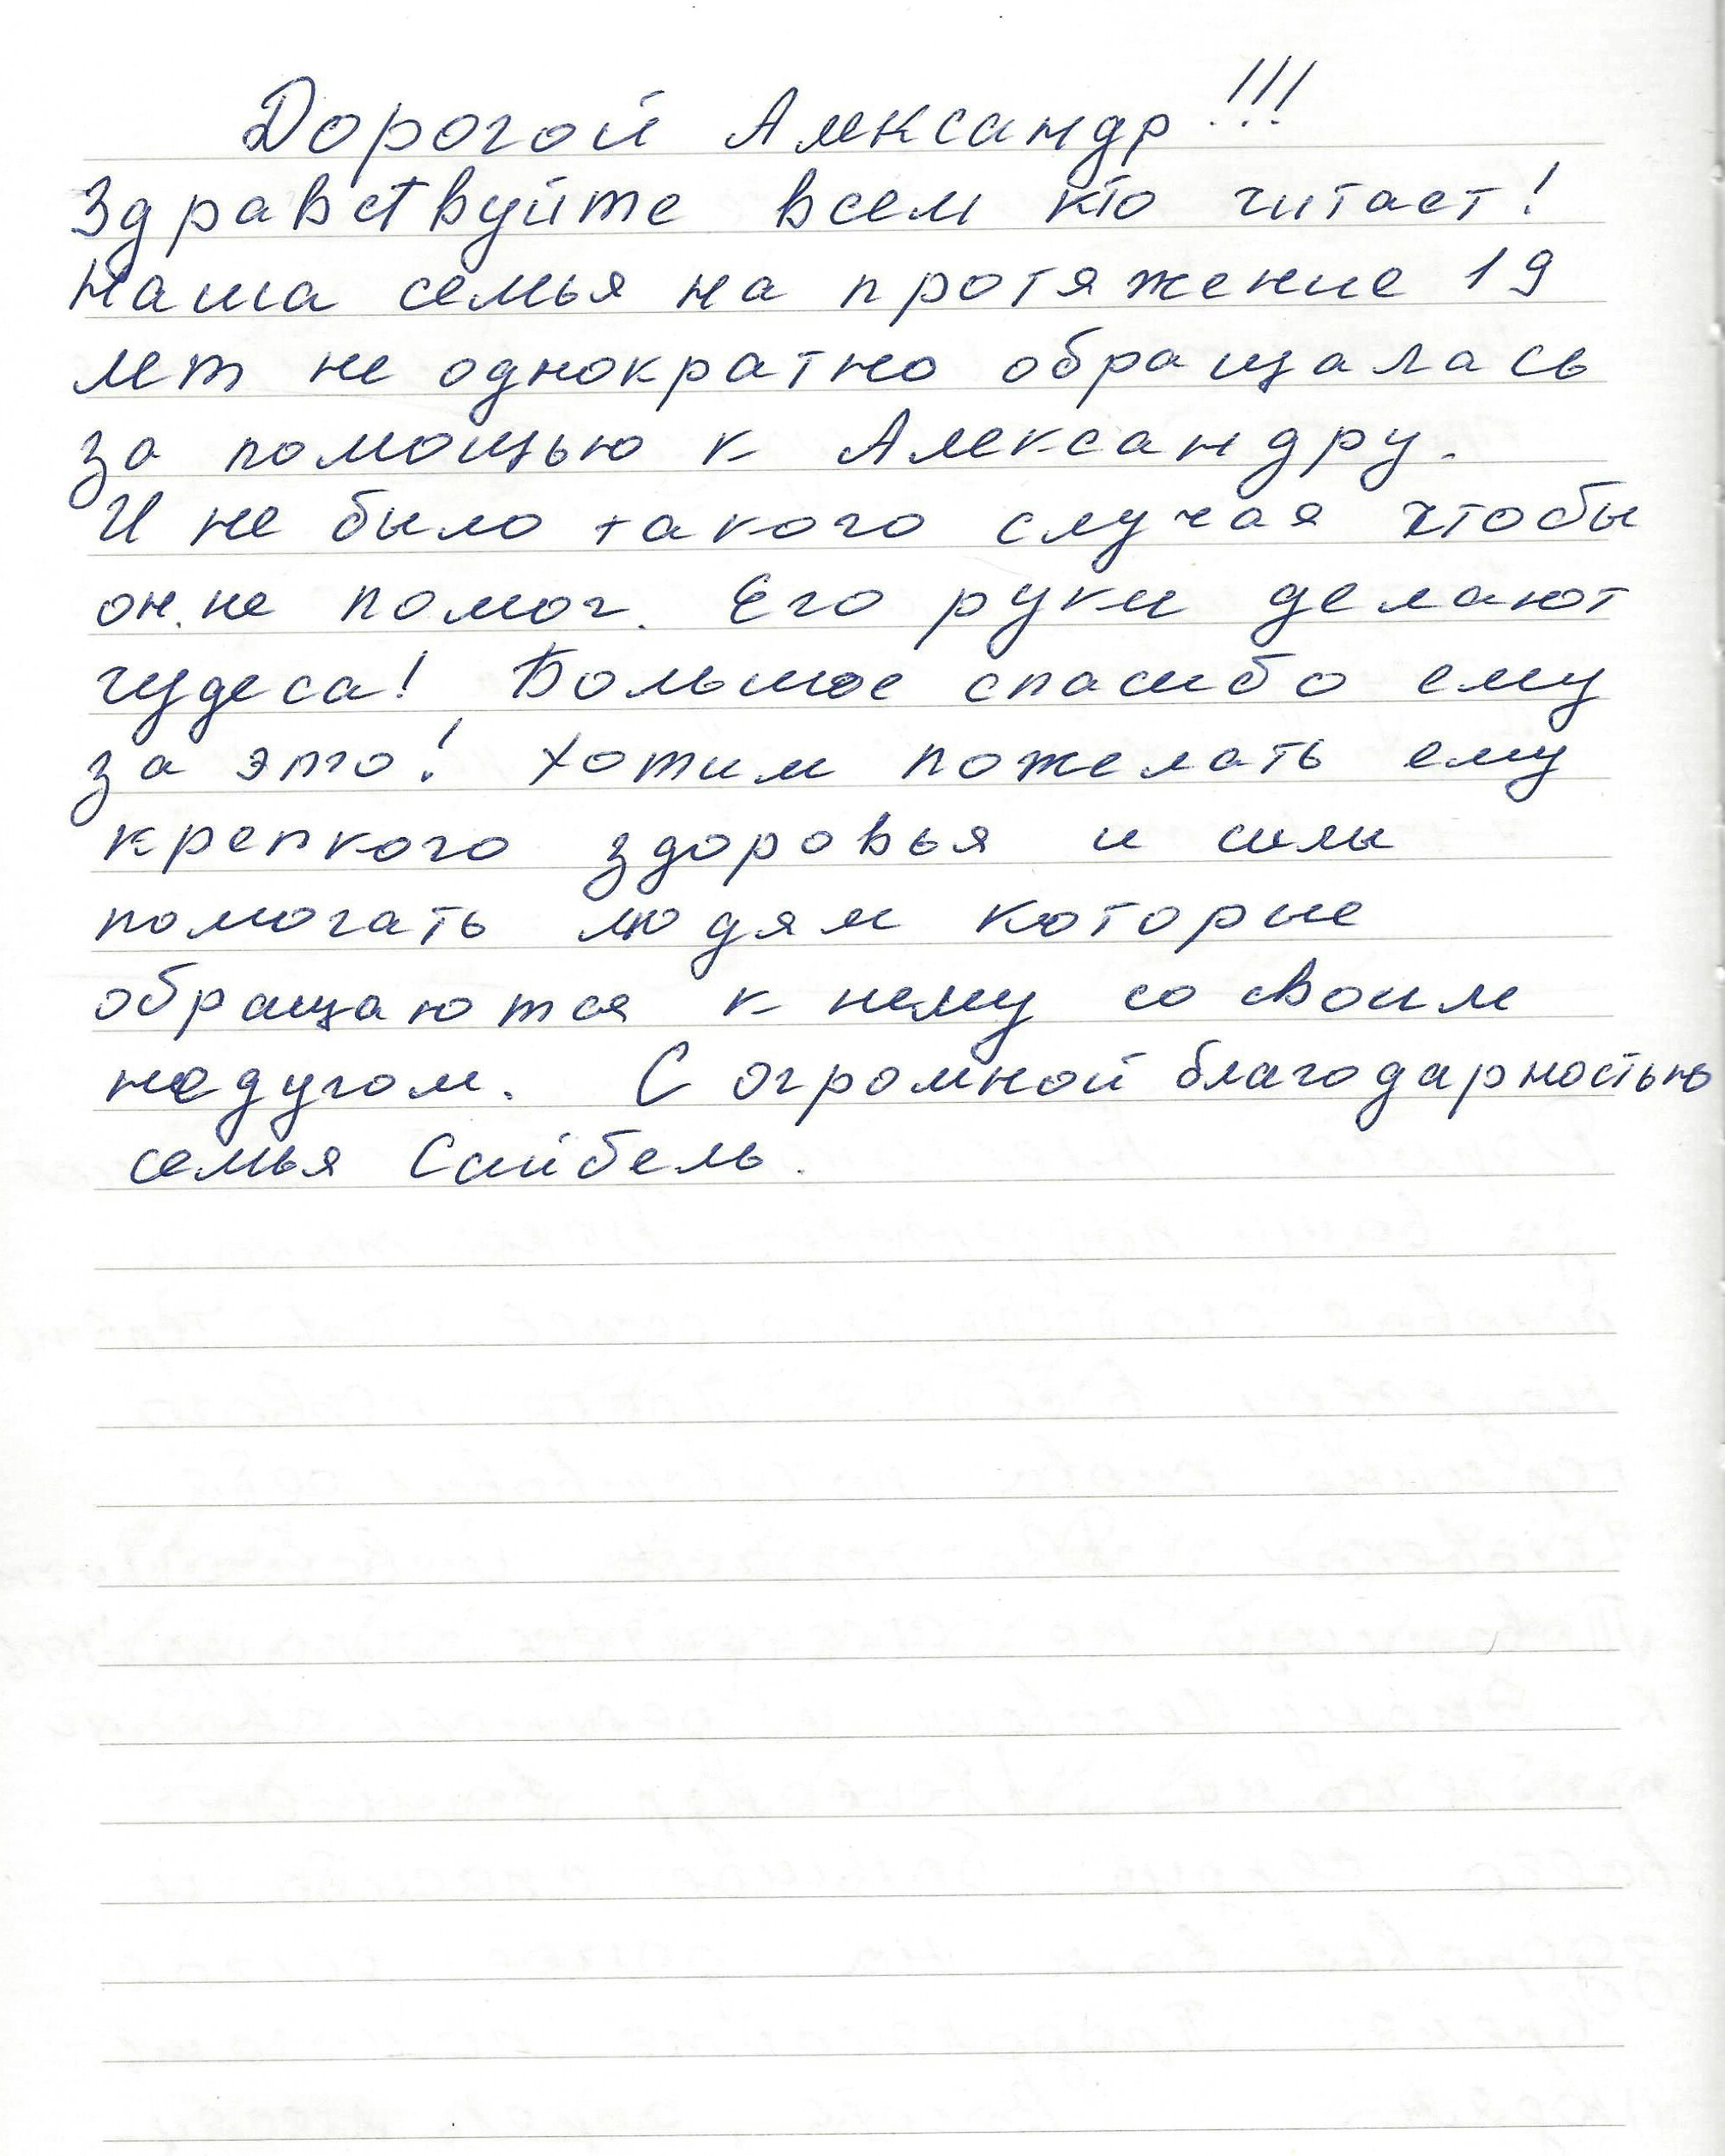 Дорогой Александр!!!
Здравствуйте всем кто читает!
Наша семья на протяжение 19
лет не однократно обращалась
за помощью к Александру.
И не было такого случая чтобы
он не помог. Его руки делают
чудеса! Большое спасибо ему
за это! Хотим пожелать ему
крепкого здоровья и силы
помогать людям которые
обращаются к нему со своим
недугом. С огромной благодарностью
семья Сайбель.